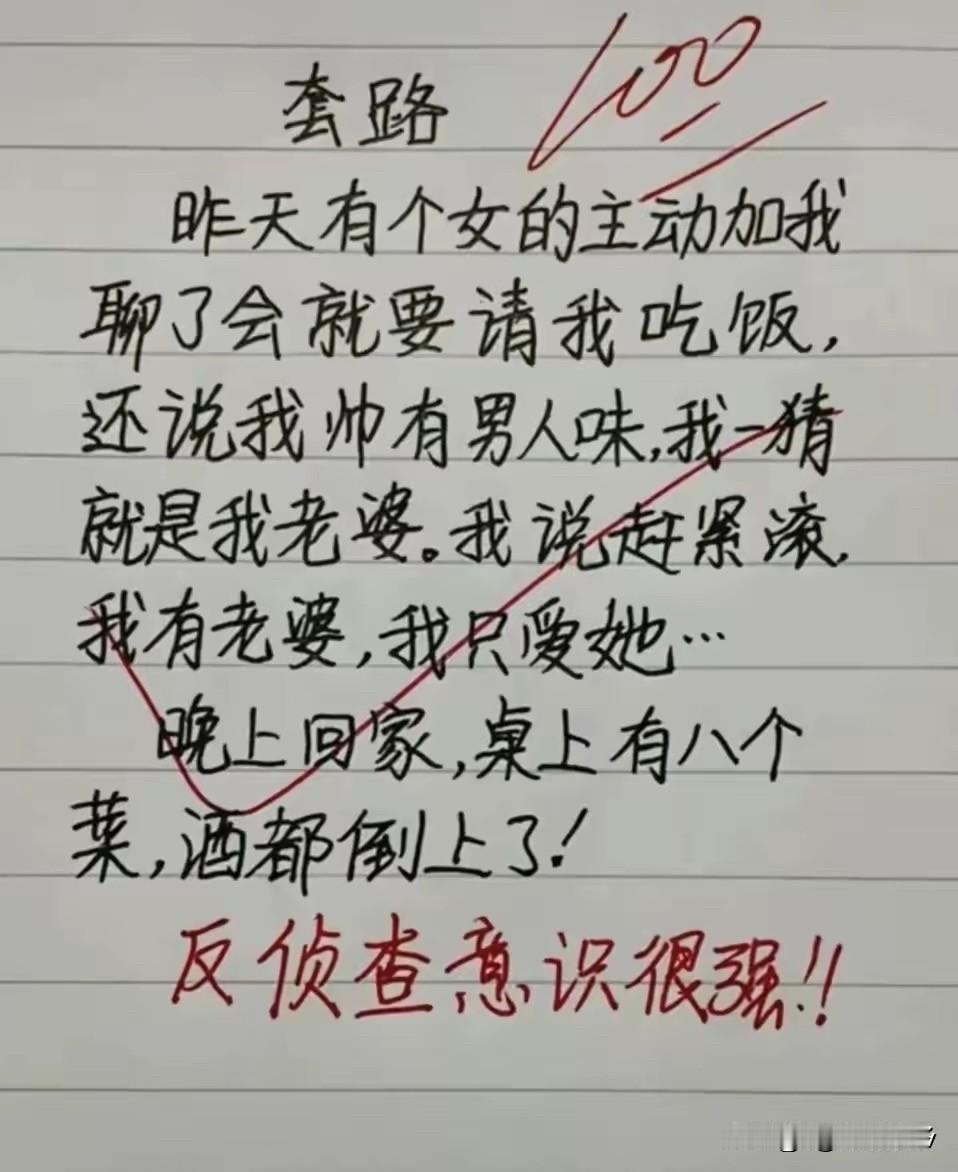 套路
100
昨天有个女的主动加我
聊了会就要请我吃饭,
还说我帅有男人味,我一猜
就是我老婆。我说赶紧滚,
我有老婆,我只爱她…
晚上回家,桌上有八个
菜,酒都倒上了!
反侦查意识很强!!